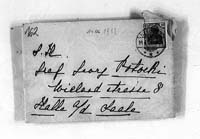 162
S. H.
Graf Georg Potocki
Wielandstrasse 8
Halle a/d Saale